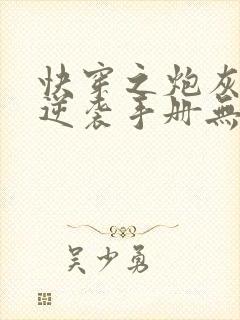 快穿之炮灰
逆袭手册無
吴少勇